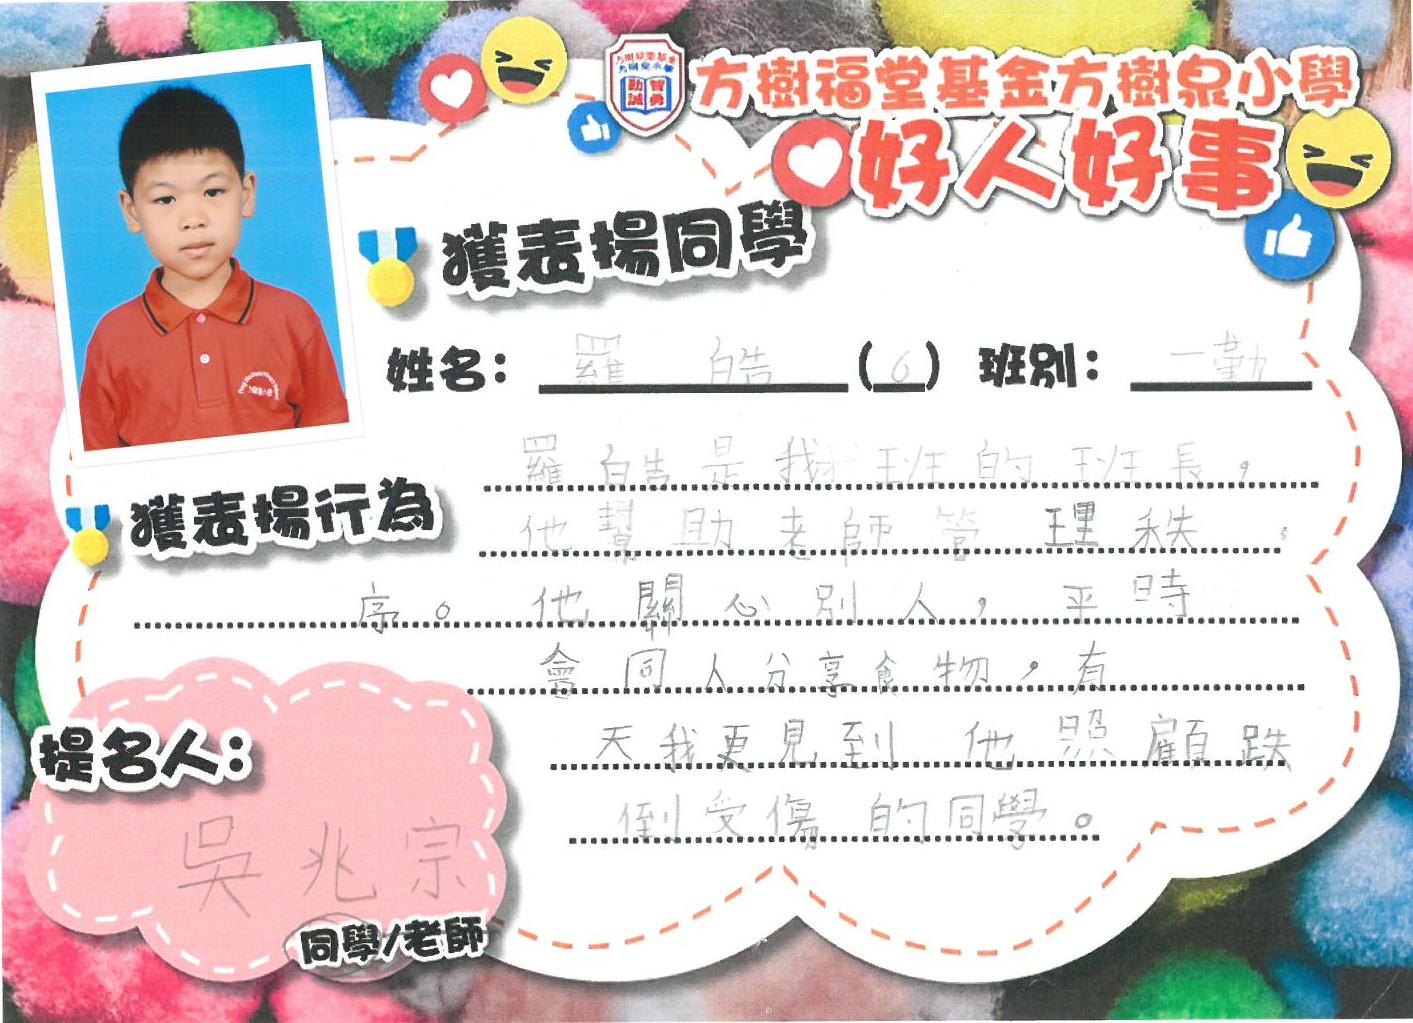 方樹福堂基金方樹泉小學
好人好事
獲表揚同學
姓名： 羅 皓 (6) 班別： 一勤
獲表揚行為
羅皓是我班的班長，
他幫助老師管理秩
序。他關心別人，平時
會同人分享食物，有
天我更見到他照顧跌
倒受傷的同學。
提名人：
吳兆宗
同學/老師